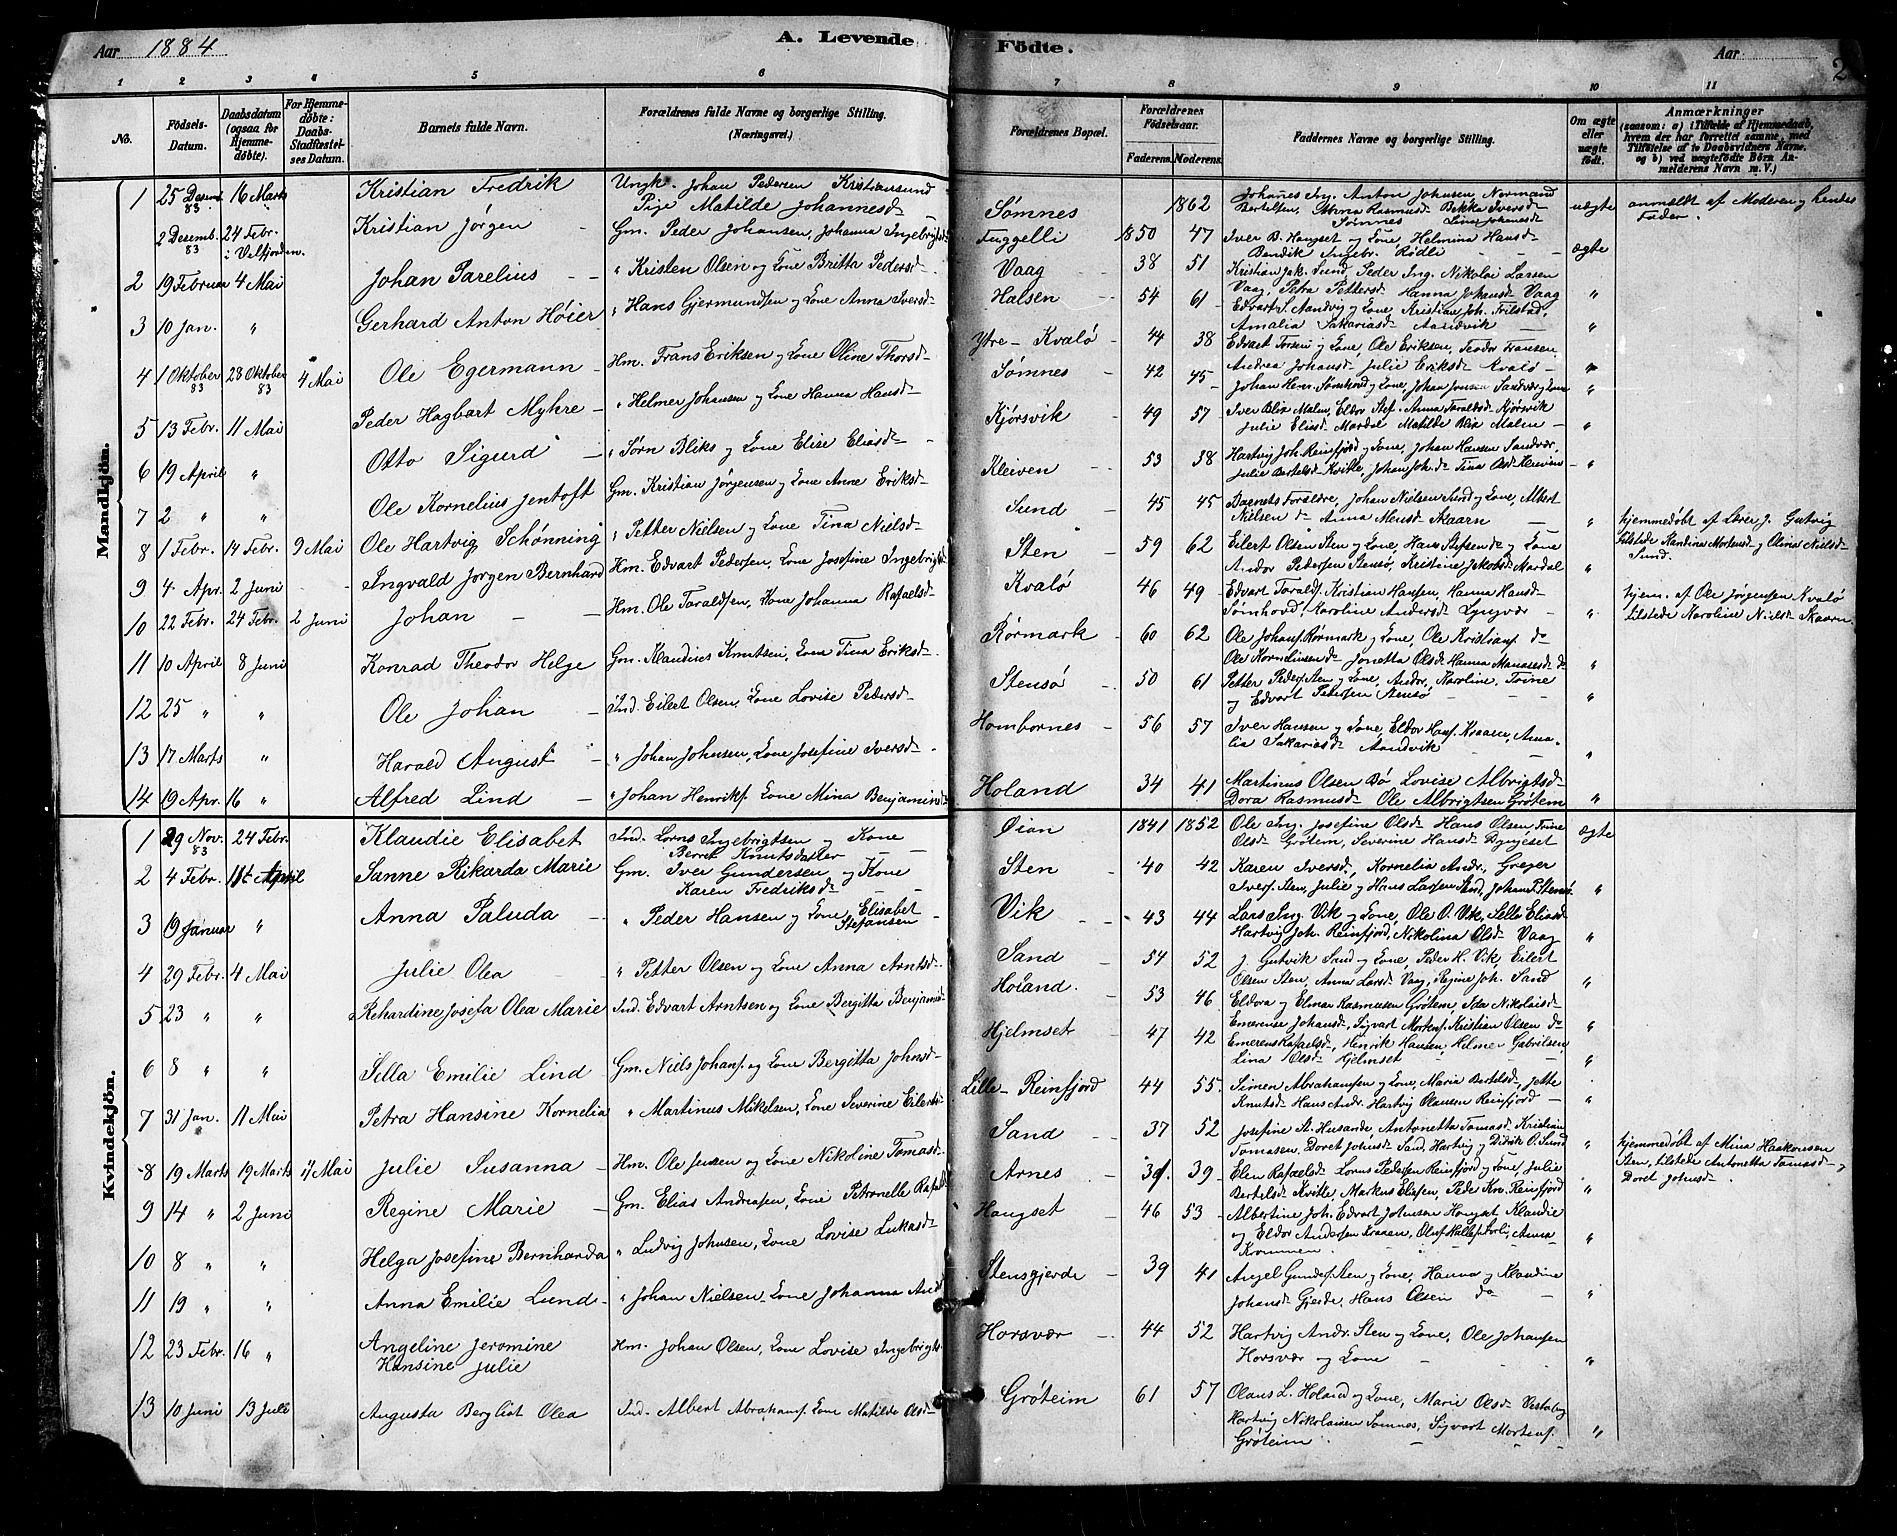 Aar 1884
A. Levende Födte.
Aar 2
1 2 3 4 5 6 7 8 9 10 11
No. Födsels-Datum. Daabsdatum (ogsaa for Hjemme-döbte). For Hjemme-döbte: Daabs-Stadfæstel-ses Datum. Barnets fulde Navn. Forældrenes fulde Navne og borgerlige Stilling. (Næringsvei.) Forældrenes Bopæl. Forældrenes Födselsaar. Faderens. Moderens. Faddernes Navne og borgerlige Stilling. Om ægte eller uægte födt. Anmærkninger (saasom: a) i Tilfælde af Hjemmedaab, hvem der har forrettet samme, med Tilföielse af to Daabsvidners Navne, og b) ved uægtefödte Börn Anmelderens Navn m. V.)
Mandkjön.
1 25 Desemb 83 16 Marts Kristian Fredrik Ungk. Johan Pedersen Kristiansund Pige Matilde Johannesd. Sømnes 1862 uægte anmeldt af Moderen og hendes Fader.
2 Desemb. 83 24 Febr. i Velfjorden. Kristian Jørgen Gm. Peder Johansen, Johanna Ingebrigtsd. Tuggelli 1850 47 Iver B. Haugset og Kone, Helmina Hansd. Bendik Ingebr. Rødli ægte
2 19 Februar 4 Mai Johan Parelius " Kristen Olsen og Kone Britta Pedersd. Vaag 38 51 Kristian Jak. Sund, Peder Ing. Nikolai Larsen Vaag, Petra Pettersd. Hanna Johansd. Vaag "
3 10 Jan. " Gerhard Anton Høier " Hans Gjermundsen og Kone Anna Iversd. Halsen 54 61 Edvart S. Aandvig og Kone, Kristian Joh. Amalia Sakariasd. Aandvik "
4 1 Oktober 83 28 Oktober 83 4 Mai Ole Egermann Hm. Frans Eriksen og Kone Oline Thorsd. Ytre-Kvalø 44 38 Edvart Torsen og Kone, Ole Eriksen, Teodor Fransen, Andrea Johansd. Julie Eriksd. Kvalø "
5 13 Febr. 11 Mai Peder Hagbart Myhre " Helmer Johansen og Kone Hanna Hansd. Sømnes 42 45 Johan Hen. Sømhovd og Kone, Johan Jensen Sandvær og Kone "
6 19 April " Otto Sigurd " Sørn Bliks og Kone Elise Eliasd. Kjørsvik 49 57 Iver Blix Malm, Eldor Stef. Anna Taraldsd. Kjørsvik Julie Eliasd. Mardal Matilde Blix Malm "
7 2 " " Ole Kornelius Jentoft Gm. Kristian Jørgensen og Kone Anne Eriksd. Kleiven 53 38 Hartvig Joh. Reinfjord og Kone, Johan Hansen Sandvær, Julie Bertelsd. Kvitle, Johan Joh. do Tina Olsd. Kleiven "
8 1 Febr. 14 Febr. 9 Mai Ole Hartvig Schønning " Petter Nielsen og Kone Tina Nielsd. Sund 45 45 Barnets Forældre, Johan Nielsen Sund og Kone, Albert Nielsen do Anna Mensd. Skaarn " hjemmedøbt af Lærer J. Gutvig tilstede Kandina Mortensd. og Olina Nielsd. Sund
9 4 Apr. 2 Juni Ingvald Jørgen Bernhard Hm. Edvart Pedersen, Kone Josefine Ingebrigtsd. Sten 59 62 Eilert Olsen Sten og Kone, Hans Stefsen do og Kone Andor Pedersen Stensø, Kristine Jakobsd. Mardal "
10 22 Febr. 24 Febr. 2 Juni Johan Hm. Ole Taraldsen, Kone Johanna Rafaelsd. Kvalø 46 49 Edvart Taralds. Kristian Hansen, Hanna Hansd. Sømhovd, Karoline Andersd. Lyngvær " hjem. af Ole Jørgensen Kvalø tilstede Karoline Nielsd. Skaarn.
11 10 April 8 Juni Konrad Theodor Helge Gm. Klaudius Knutsen, Kone Tina Eriksd. Rørmark 60 62 Ole Johans. Rørmark og Kone, Ole Kristians. do Ole Korneliusen do Jonetta Olsd. Hanna Manassesd. do "
12 25 " " Ole Johan Ind. Eilert Olsen, Kone Lovise Pedersd. Stensø 50 61 Petter Peders. Sten og Kone, Andor, Karoline, Trine og Edvart Petersen Stensø "
13 17 Marts " Harald August " Johan Johnsen, Kone Josefine Iversd. Hombornes 56 57 Iver Hansen og Kone, Eldor Hans. Kraaen, Amalia Sakariasd. Aandvik "
14 19 Apr. 16 " Alfred Lind " Johan Henriks. Kone Mina Benjaminsd. Holand 34 41 Martinus Olsen Bø Lovise Albrigtsd. Dora Rasmusd. Ole Albrigtsen Grøtem "
Kvindekjön.
1 29 Nov. 83 24 Febr. Klaudie Elisabet Ind. Lorns Ingebrigtsen og Kone Berret Knutsdatter Øian 1841 1852 Ole Ing. Josefine Olsd. Hans Olsen, Trine Olsd. Grøtem, Severine Hansd. Dyngeset ægte
2 4 Febr. 18t April Sanne Rikarda Marie Gm. Iver Gundersen og Kone Karen Fredriksd. Sten 40 42 Karen Iversd., Kornelia Andr., Greger Ivers. Sten, Julie og Hans Larsen Sund, Johan P. Stensø "
3 19 Januar " Anna Paluda " Peder Hansen og Kone Elisabet Stefansen Vik 43 44 Lars Ing. Vik og Kone, Ole O. Vik, Sella Eliasd. Hartvig Joh. Reinfjord, Nikolina Olsd. Vaag "
4 29 Febr. 4 Mai Julie Olea " Petter Olsen og Kone Anna Arntsd. Sand 54 52 J. Gutvik Sund og Kone, Peder H. Vik Eilert Olsen Sten, Anna Larsd. Vaag, Regine Joh. Sand "
5 23 " " Rehardine Josefa Olea Marie Ind. Edvart Arntsen og Kone Bergitta Benjaminsd. Høland. 53 46 Eldora og Elmar Rasmusen Grøtem, Ida Nikolaisd. Emerense Johansd., Sigvart Mortens. Kristian Olsen do "
6 8 " " Sella Emilie Lind Gm. Niels Johans. og Kone Bergitta Johnsd. Hjelmset 47 42 Emerens Rafaelsd., Henrik Hansen, Helmer Gabrielsen, Lina Olsd. Hjelmset "
7 31 Jan. 11 Mai Petra Hansine Kornelia " Martinus Mikelsen, Kone Severine Eilertsd. Lille-Reinfjord 44 55 Simen Abrahamsen og Kone, Maria Bertelsd., Jette Knutsd. Hans Andr. Hartvig Olausen Reinfjord "
8 19 Marts 19 Marts 11 Mai Julie Susanna Hm. Ole Jensen og Kone Nikoline Tomasd. Sand 37 52 Josefine St. Husande Antonetta Tomasd. Kristian Tomasen, Doret Johnsd. Sand, Hartvig og Didrik O. Sund " hjemmedøbt af Mina Haakonsen Sten, tilstede Antonetta Tomasd. og Doret Johnsd.
9 14 " 2 Juni Regine Marie Gm. Elias Andreasen, Kone Petronelle Rafaelsd. Arnes 39. 39 Elen Rafaelsd. Lorns Pedersen Reinfjord og Kone, Julie Bertelsd. Kvitle, Markus Eliesen, Peder Kn. Reinfjord "
10 8 " " Helga Josefine Bernharda " Ludvig Johnsen, Kone Lovise Lukasd. Haugset 46 53 Albertine Joh. Edvart Johnsen Haugset Klaudie og Eldor Andersen Kraaen, Oluf Anna Krommen. "
11 19 " " Anna Emilie Lund " Johan Nielsen, Kone Johanna And. Stensgjerde 39 41 Angel Gunders. Sten og Kone, Hanna og Klaudine Johansd. Gjerde, Hans Olsen do "
12 23 Febr. 16 " Angeline Jeromine Hansine Julie Hm. Johan Olsen, Kone Lovise Ingebrigtsd. Horsvær 44 52 Hartvig Andr. Sten og Kone, Ole Johansen Horsvær og Kone "
13 10 Juni 13 Juli Augusta Bergliot Olea Ind. Albert Abrahams. Kone Matilde Olsd. Grøteim 61 57 Olaus L. Holand og Kone, Marie Olsd. Hartvig Nikolaisen Sømnes, Sigvart Mortens. Grøteim. "